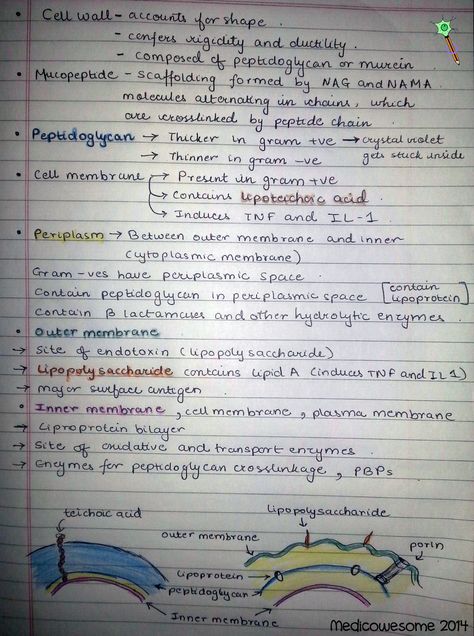 • Cell wall - accounts for shape.
- confers rigidity and ductility.
- composed of peptidoglycan or murein
• Mucopeptide - scaffolding formed by NAG and NAMA
molecules alternating in chains, which
are crosslinked by peptide chain.
• Peptidoglycan → Thicker in gram +ve → crystal violet
gets stuck inside
→ Thinner in gram -ve
• Cell membrane → Present in gram +ve
→ Contains lipoteichoic acid.
→ Induces TNF and IL-1.
• Periplasm → Between outer membrane and inner
(cytoplasmic membrane)
Gram -ves have periplasmic space.
Contain peptidoglycan in periplasmic space [contain
lipoprotein]
Contain β lactamases and other hydrolytic enzymes.
• Outer membrane
→ Site of endotoxin (lipopolysaccharide)
→ Lipopolysaccharide contains lipid A (induces TNF and IL1)
→ major surface antigen.
• Inner membrane, cell membrane, plasma membrane
→ Liproprotein bilayer
→ Site of oxidative and transport enzymes.
→ Enzymes for peptidoglycan crosslinkage, PBPs
teichoic acid
lipopolysaccharide
outer membrane
porin
lipoprotein
peptidoglycan
Inner membrane
Medicowesome 2014